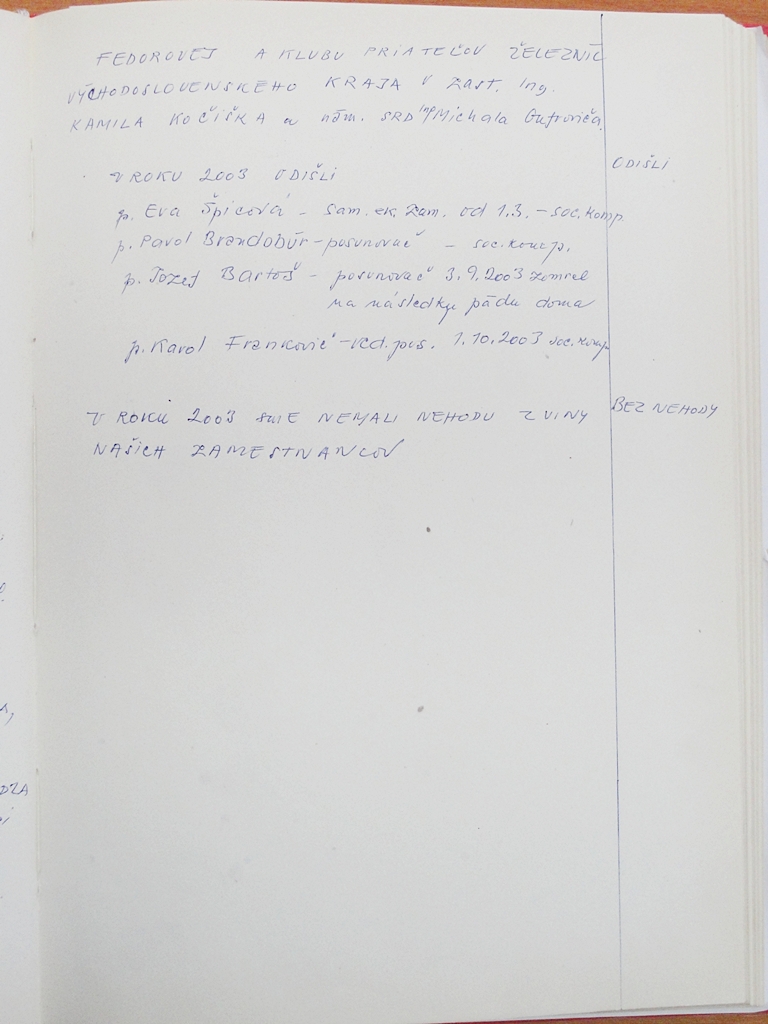 FEDOROVEJ A KLUBU PRIATEĽOV ŽELEZNÍC
VÝCHODOSLOVENSKÉHO KRAJA V zast. Ing.
KAMILA KOČIŠKA a nám. SRD Ing Michala
ODIŠLI
V ROKU 2003 ODIŠLI
p. Eva Špicová - sam. ek. zam. od 1.3. - soc. komp.
p. Pavol Brandobúr - posunovač - soc. komp.
p. Jozef Bartoš - posunovač 3.9.2003 zomrel
na následky pádu doma
p. Karol Frankovič - ved. pos. 1.10.2003 soc. komp.
V ROKU 2003 SME NEMALI NEHODU Z VINY
BEZ NEHODY
NAŠICH ZAMESTNANCOV